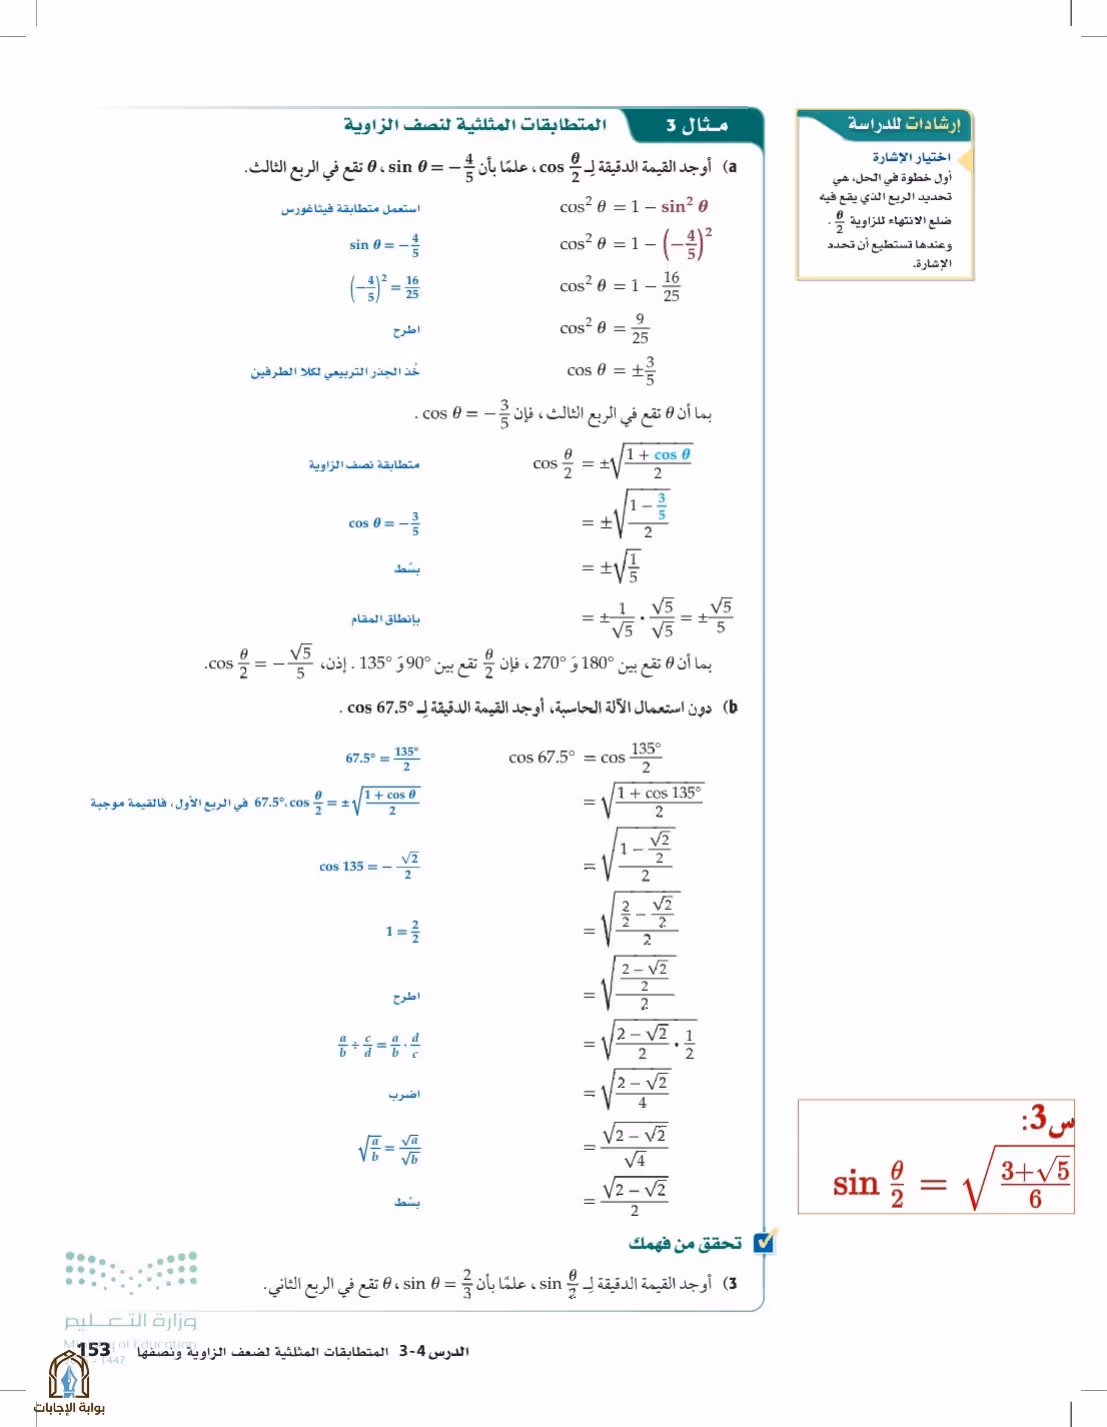 مـثال 3 المتطابقات المثلثية لنصف الزاوية
a) أوجد القيمة الدقيقة لِـ cos θ/2 ، علمًا بأن sin θ = −4/5 ، θ تقع في الربع الثالث.
cos² θ = 1 − sin² θ استعمل متطابقة فيثاغورس
cos² θ = 1 − (−4/5)² sin θ = −4/5
cos² θ = 1 − 16/25 (−4/5)² = 16/25
cos² θ = 9/25 اطرح
cos θ = ±3/5 خُذ الجذر التربيعي لكلا الطرفين
بما أن θ تقع في الربع الثالث ، فإن cos θ = −3/5 .
cos θ/2 = ±√((1 + cos θ)/2) متطابقة نصف الزاوية
= ±√((1 − 3/5)/2) cos θ = −3/5
= ±√(1/5) بسّط
= ±1/√5 · √5/√5 = ±√5/5 بإنطاق المقام
بما أن θ تقع بين 180° وَ 270° ، فإن θ/2 تقع بين 90° وَ 135° . إذن، cos θ/2 = −√5/5.
b) دون استعمال الآلة الحاسبة، أوجد القيمة الدقيقة لِـ cos 67.5° .
cos 67.5° = cos 135°/2 67.5° = 135°/2
= √((1 + cos 135°)/2) 67.5°، cos θ/2 = ±√((1 + cos θ)/2) في الربع الأول، فالقيمة موجبة
= √((1 − √2/2)/2) cos 135 = − √2/2
= √((2/2 − √2/2)/2) 1 = 2/2
= √(((2 − √2)/2)/2) اطرح
= √((2 − √2)/2 · 1/2) a/b ÷ c/d = a/b · d/c
= √((2 − √2)/4) اضرب
= √(2 − √2)/√4 √(a/b) = √a/√b
= √(2 − √2)/2 بسّط
تحقق من فهمك
3) أوجد القيمة الدقيقة لِـ sin θ/2 ، علمًا بأن sin θ = 2/3 ، θ تقع في الربع الثاني.
إرشادات للدراسة
اختيار الإشارة
أول خطوة في الحل، هي
تحديد الربع الذي يقع فيه
ضلع الانتهاء للزاوية θ/2 .
وعندها تستطيع أن تحدد
الإشارة.
س3:
sin θ/2 = √((3+√5)/6)
وزارة التعـــليم
Ministry of Education
1447
الدرس 4-3 المتطابقات المثلثية لضعف الزاوية ونصفها 153
بوابة الإجابات